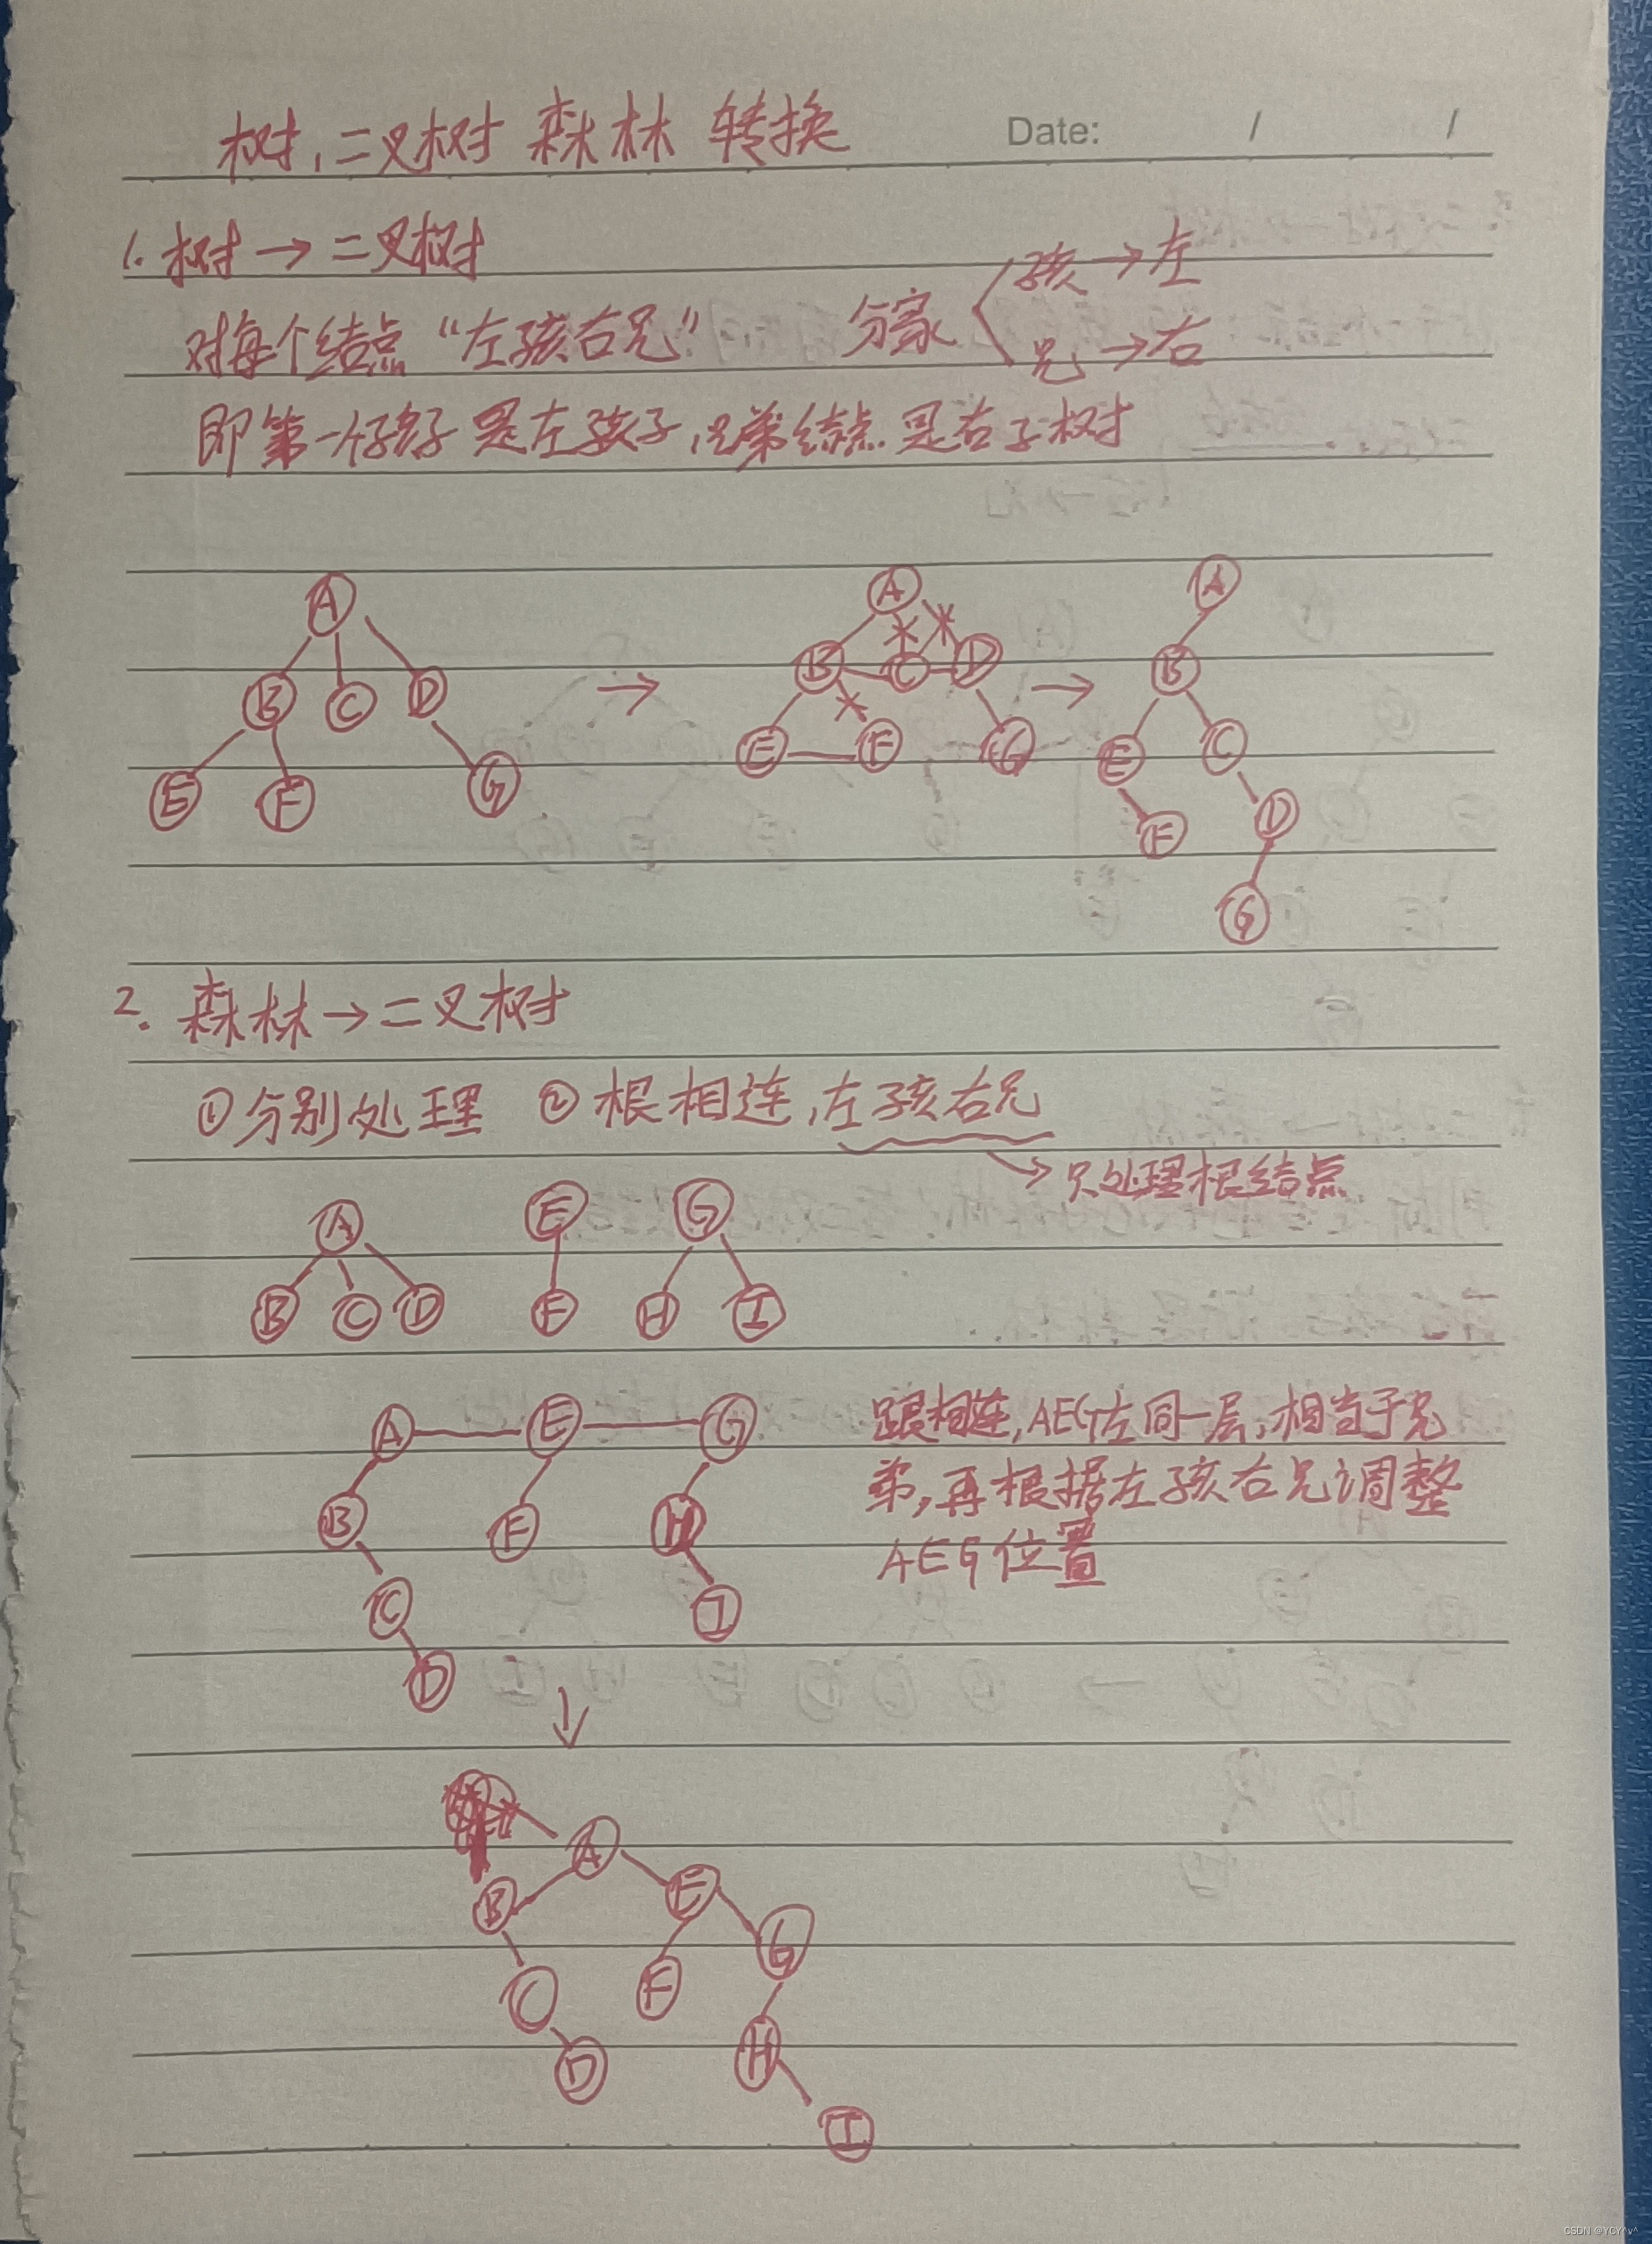 树,二叉树 森林 转换
Date: / /
1. 树→二叉树
对每个结点“左孩右兄” 分家 孩→左
兄→右
即第一个孩子是左孩子,兄弟结点是右子树
A A A
B C D → B C D → B
E F G E F G E C
F D
G
2. 森林→二叉树
①分别处理 ②根相连,左孩右兄
→只处理根结点
A E G
B C D F H I
A E G
跟相连,AEG在同一层,相当于兄
弟,再根据左孩右兄调整
AEG位置
B F H
C I
D
↓
A
B E
C F G
D H
I
CSDN @YCY^v^